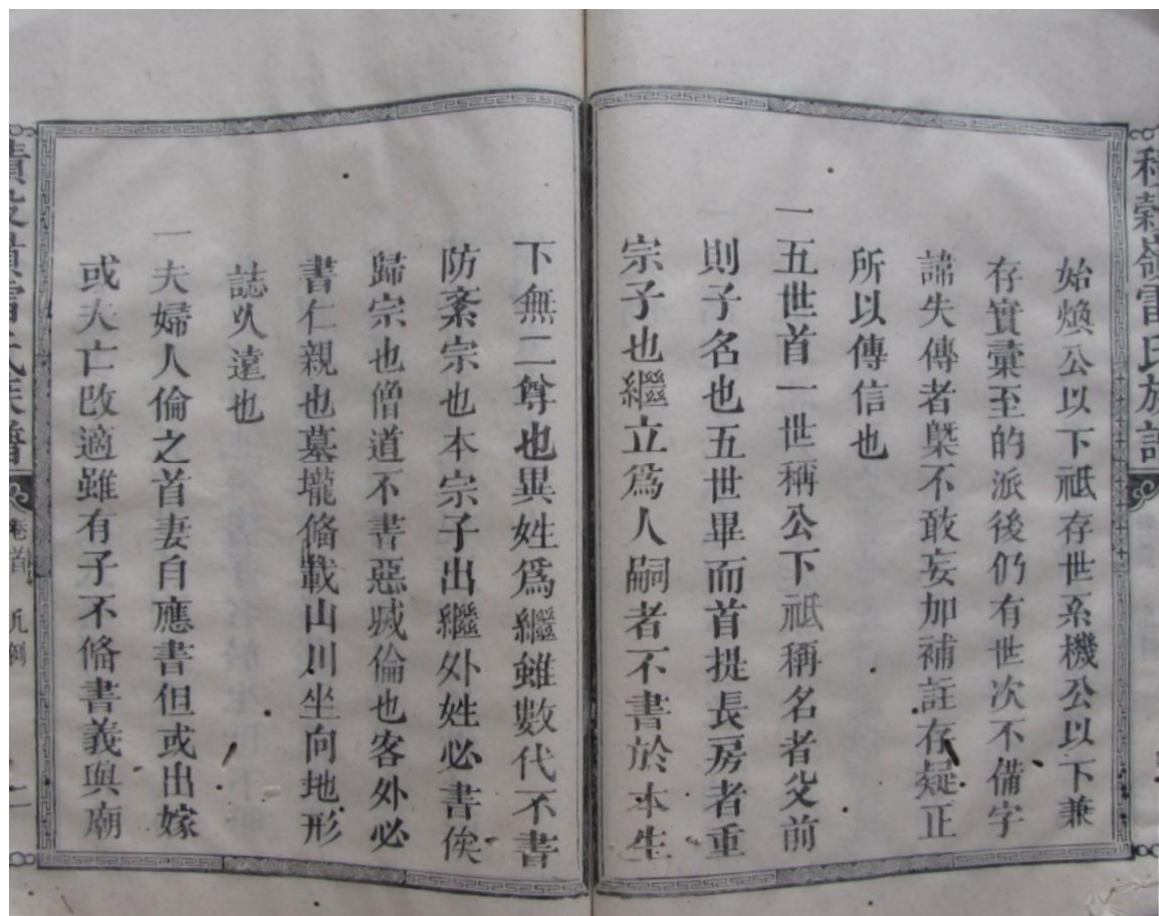 種穀嶺雷氏族譜
始煥公以下祗存世系機公以下兼
存實彙至的派後仍有世次不備字
諱失傳者槩不敢妄加補註存疑正
所以傳信也
一五世首一世稱公下祗稱名者父前
則子名也五世畢而首提長房者重
宗子也繼立爲人嗣者不書於本生
下無二尊也異姓爲繼雖數代不書
防紊宗也本宗子出繼外姓必書俟
歸宗也僧道不書惡滅倫也客外必
書仁親也墓壠俻載山川坐向地形
誌久遠也
一夫婦人倫之首妻自應書但或出嫁
或夫亡改適雖有子不俻書義與廟
種穀嶺雷氏族譜
卷首
凡例
二